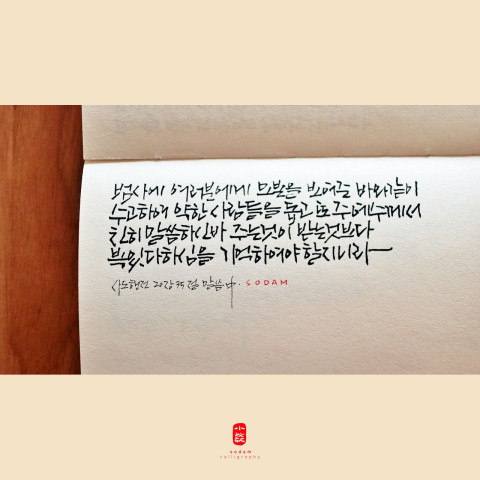 범사에 여러분에게 모본을 보여준 바와같이
수고하여 약한 사람들을 돕고 또 주예수께서
친히 말씀하신바 주는것이 받는것보다
복이있다하심을 기억하여야 할지니라
사도행전 20장 35절 말씀 中. SODAM
sodam
calligraphy